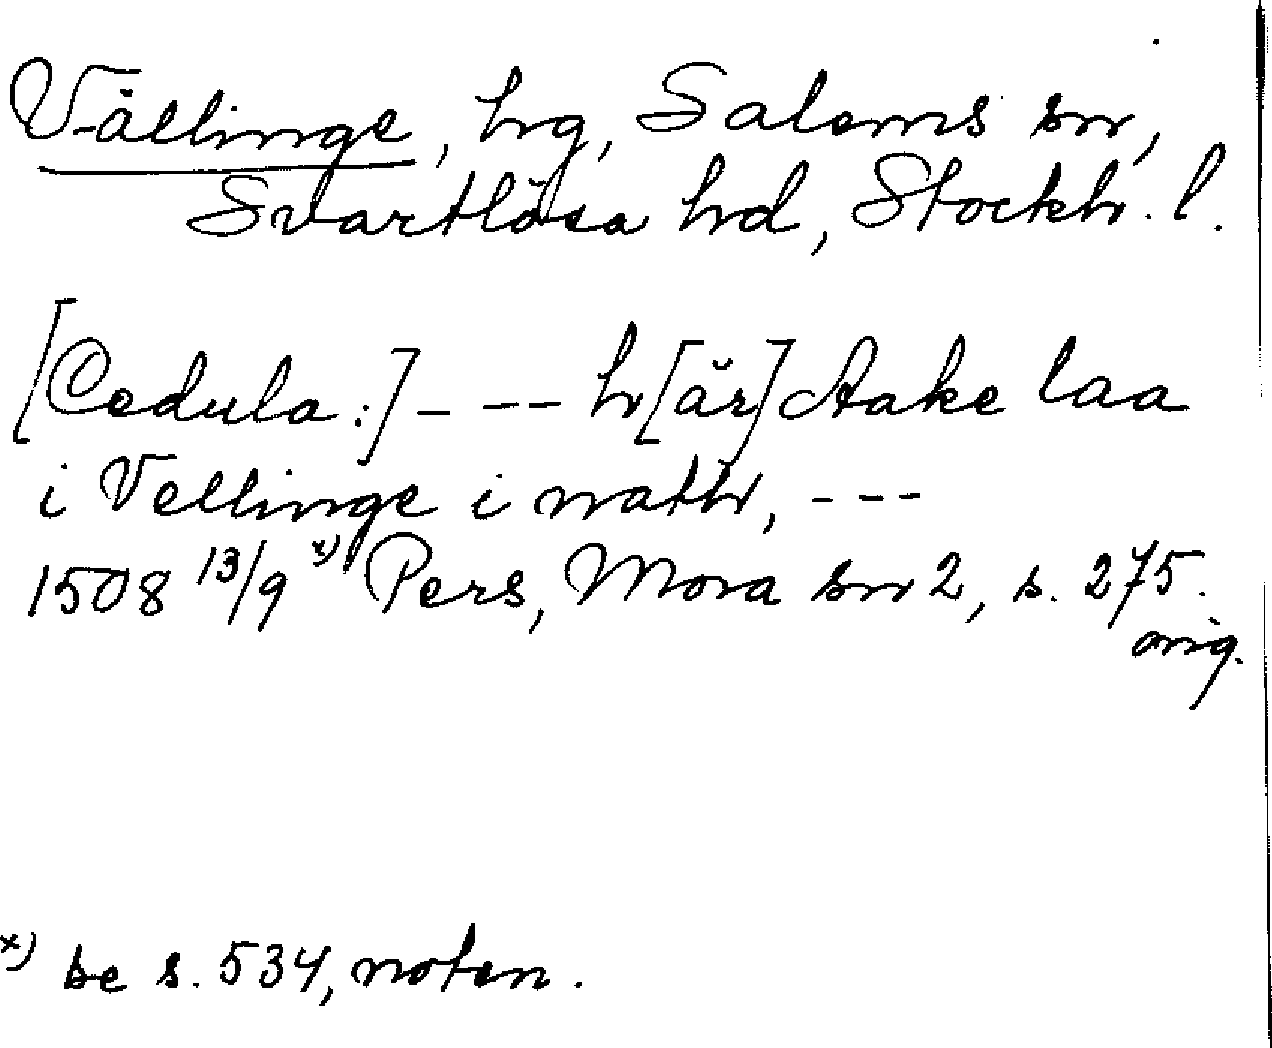 Vällinge, hg, Salems sn,
Svartlösa hd, Stockh. l.
[Cedula:] - - - h[är] Aake laa
i Vellinge i nath, - - -
1508 13/9 x) Pers, Mora sn 2, s. 275.
orig.
x) se s. 534, noten.